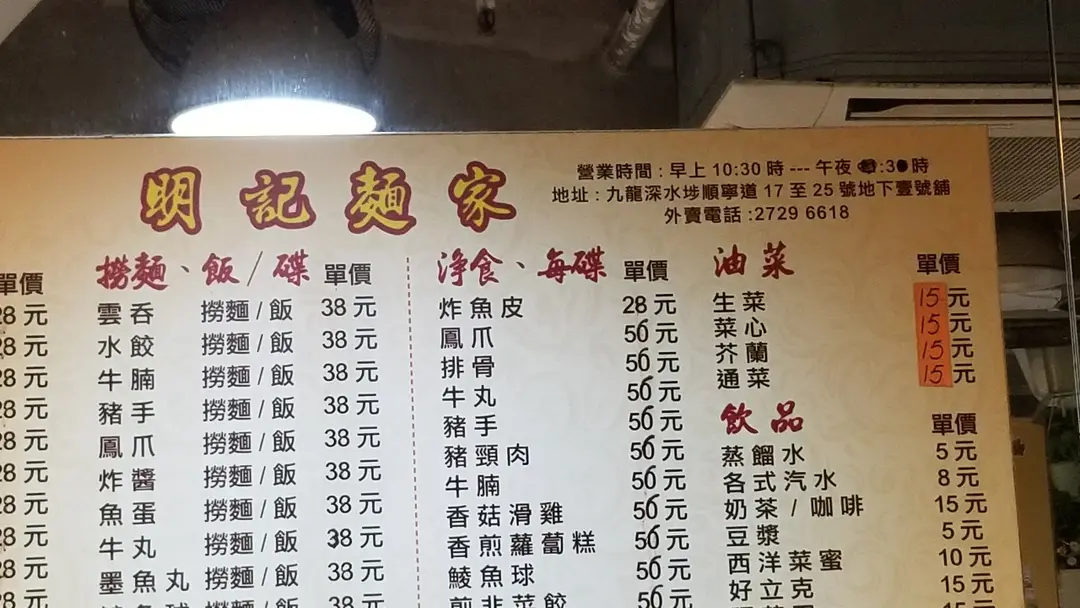 明記麵家
營業時間 : 早上 10:30 時 --- 午夜 :30 時
地址 : 九龍深水埗順寧道 17 至 25 號地下壹號舖
外賣電話 :2729 6618
單價
28 元
28 元
28 元
28 元
28 元
28 元
28 元
28 元
28 元
28 元
撈麵、飯/碟 單價
雲吞 撈麵 / 飯 38 元
水餃 撈麵 / 飯 38 元
牛腩 撈麵 / 飯 38 元
豬手 撈麵 / 飯 38 元
鳳爪 撈麵 / 飯 38 元
炸醬 撈麵 / 飯 38 元
魚蛋 撈麵 / 飯 38 元
牛丸 撈麵 / 飯 38 元
墨魚丸 撈麵 / 飯 38 元
撈麵 / 飯 38 元
淨食、每碟 單價
炸魚皮 28 元
鳳爪 50 元
排骨 50 元
牛丸 50 元
豬手 50 元
豬頸肉 50 元
牛腩 50 元
香菇滑雞 50 元
香煎蘿蔔糕 50 元
鯪魚球 50 元
煎韭菜餃 50 元
油菜 單價
生菜 15 元
菜心 15 元
芥蘭 15 元
通菜 15 元
飲品 單價
蒸餾水 5 元
各式汽水 8 元
奶茶 / 咖啡 15 元
豆漿 5 元
西洋菜蜜 10 元
好立克 15 元